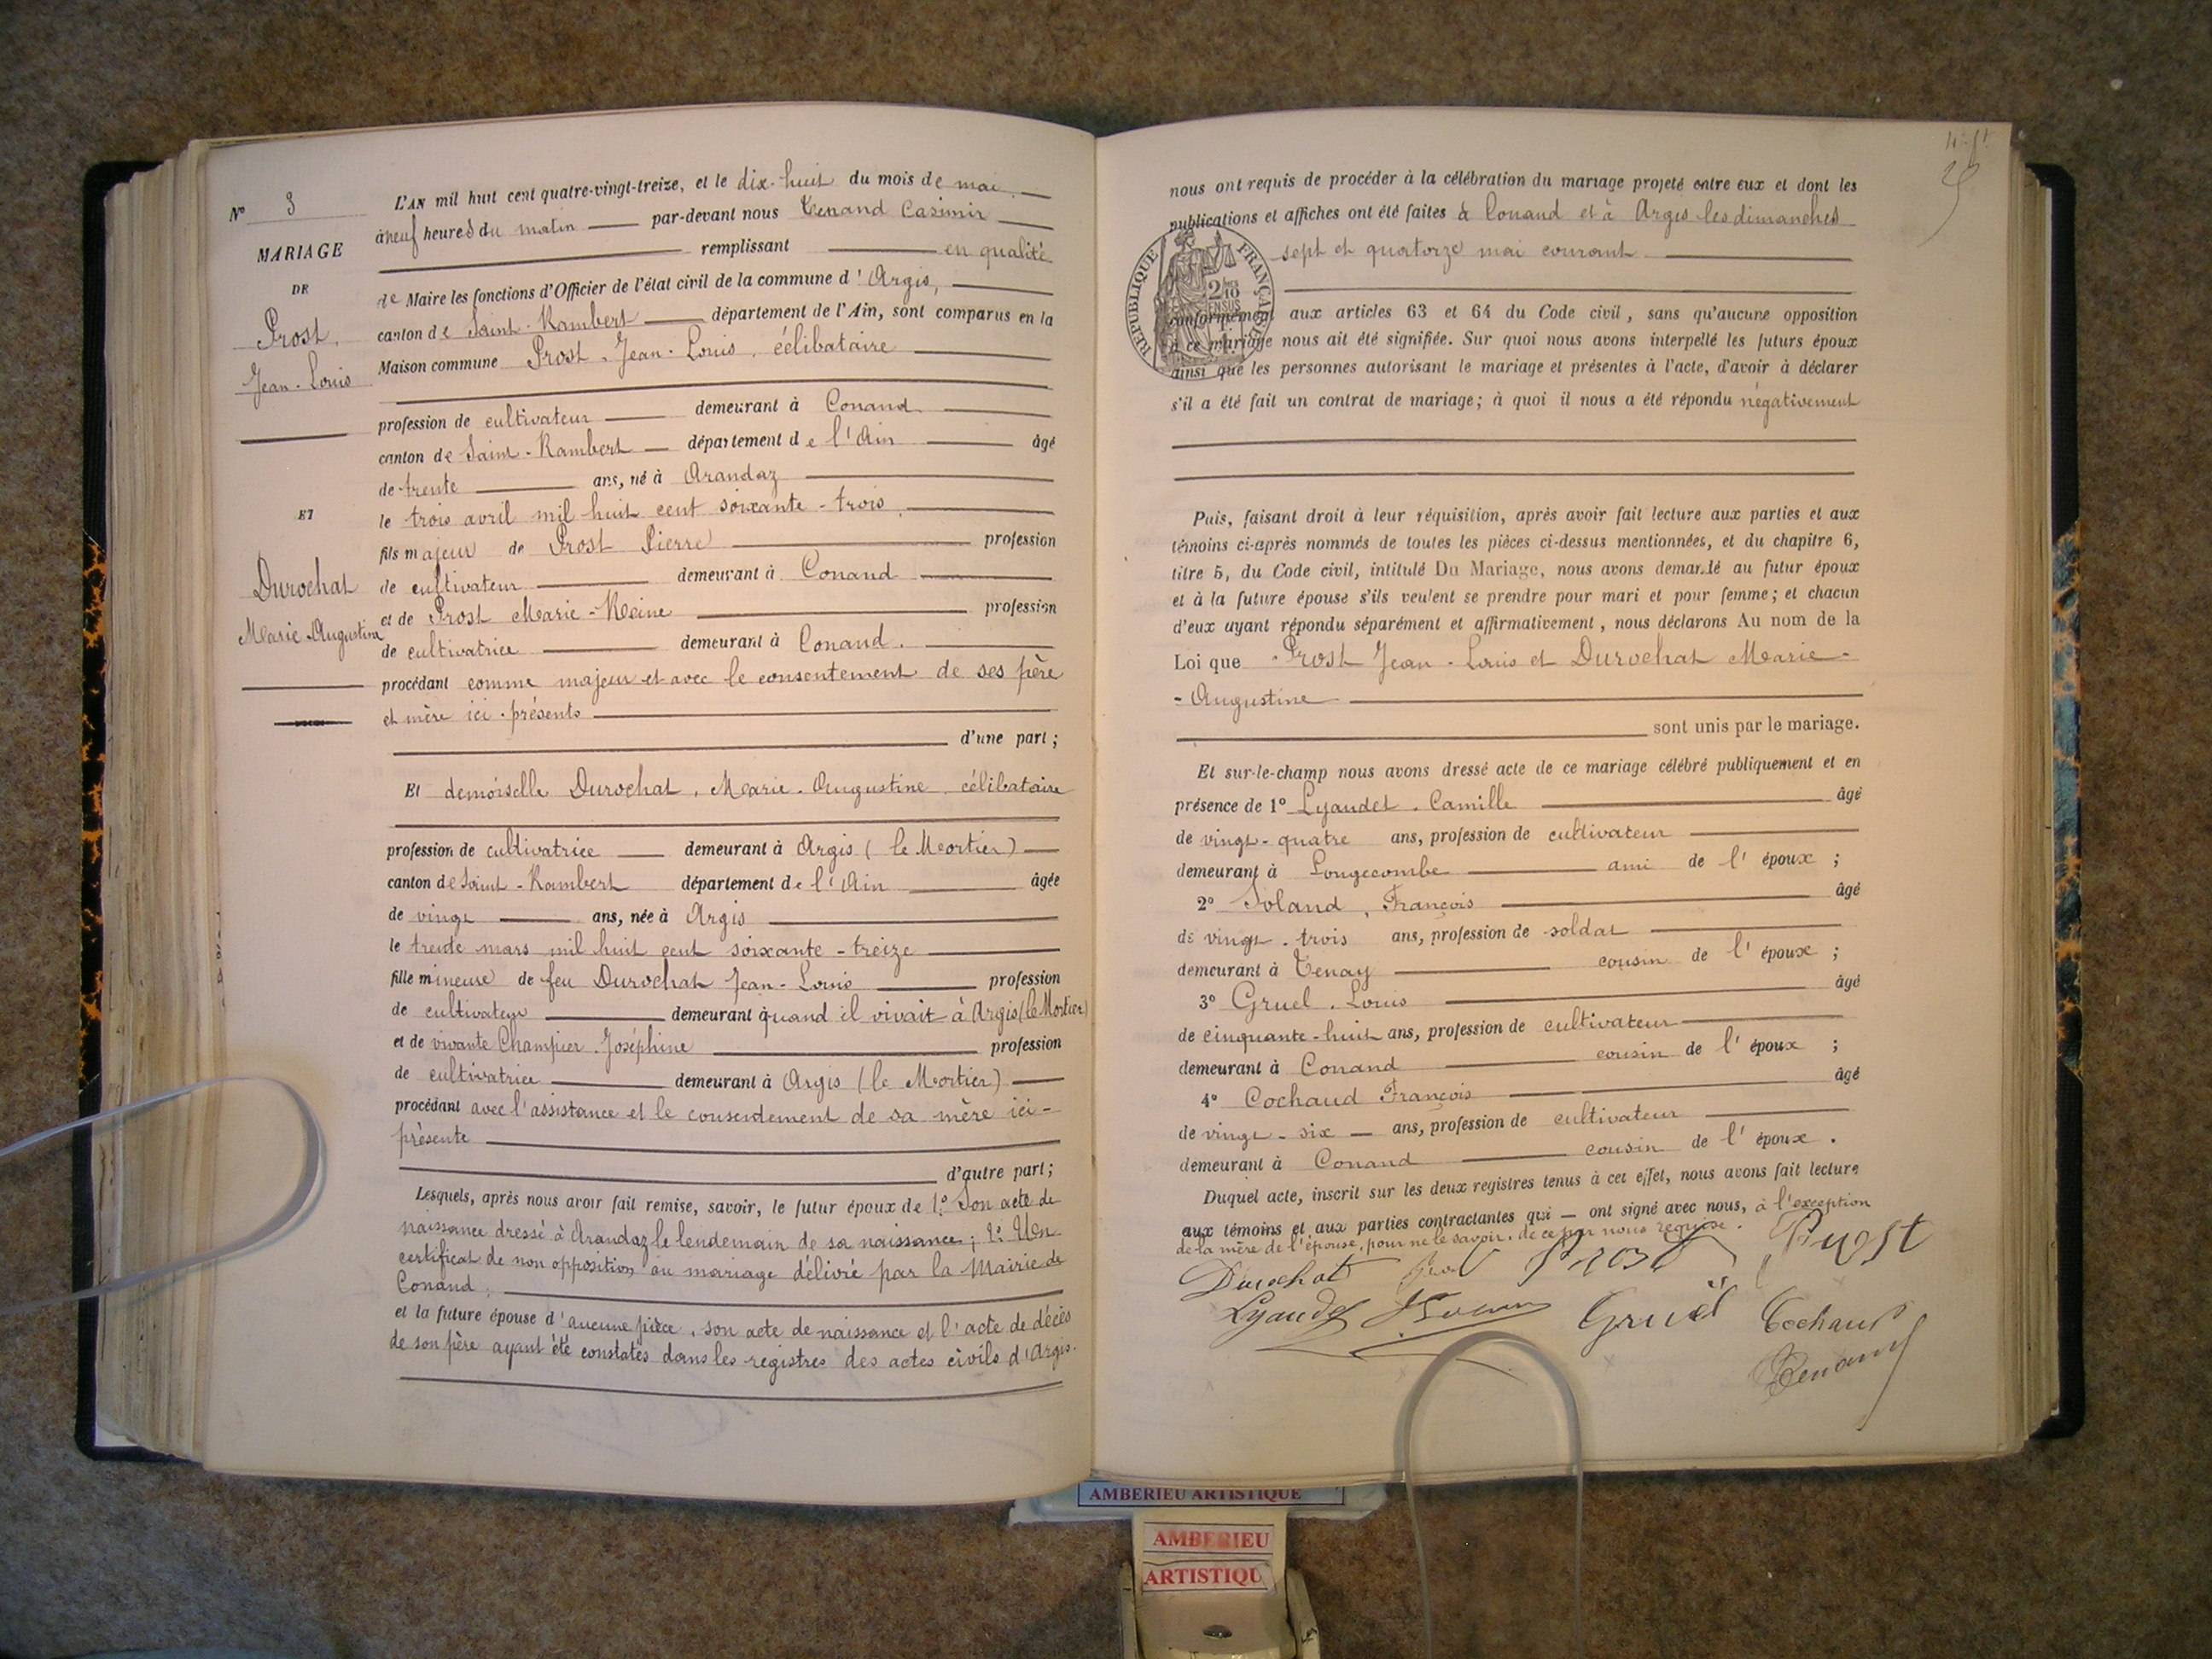 N° 3
MARIAGE
DE
Prost,
Jean-Louis
ET
Durochat
Marie-Augustine
L'AN mil huit cent quatre-vingt-treize, et le dix-huit du mois de mai
à neuf heures du matin par-devant nous Tenand Casimir
remplissant en qualité
de Maire les fonctions d'Officier de l'état civil de la commune d'Argis,
canton de Saint-Rambert département de l'Ain, sont comparus en la
Maison commune Prost, Jean-Louis, célibataire
profession de cultivateur demeurant à Conand
canton de Saint-Rambert département de l'Ain âgé
de trente ans, né à Arandaz
le trois avril mil huit cent soixante-trois,
fils majeur de Prost Pierre profession
de cultivateur demeurant à Conand
et de Prost Marie-Reine profession
de cultivatrice demeurant à Conand.
procédant comme majeur et avec le consentement de ses père
et mère ici-présents
d'une part;
Et demoiselle Durochat, Marie-Augustine, célibataire
profession de cultivatrice demeurant à Argis (le Mortier)
canton de Saint-Rambert département de l'Ain âgée
de vingt ans, née à Argis
le trente mars mil huit cent soixante-treize
fille mineure de feu Durochat Jean-Louis profession
de cultivateur demeurant quand il vivait à Argis (le Mortier)
et de vivante Champier Joséphine profession
de cultivatrice demeurant à Argis (le Mortier)
procédant avec l'assistance et le consentement de sa mère ici-
présente
d'autre part;
Lesquels, après nous avoir fait remise, savoir, le futur époux de 1° Son acte de
naissance dressé à Arandaz le lendemain de sa naissance; 2° Un
certificat de non opposition au mariage délivré par la Mairie de
Conand,
et la future épouse d'aucune pièce, son acte de naissance et l'acte de décès
de son père ayant été constatés dans les registres des actes civils d'Argis.
25
nous ont requis de procéder à la célébration du mariage projeté entre eux et dont les
publications et affiches ont été faites à Conand et à Argis les dimanches
sept et quatorze mai courant
RÉPUBLIQUE FRANÇAISE
conformément aux articles 63 et 64 du Code civil, sans qu'aucune opposition
à ce mariage nous ait été signifiée. Sur quoi nous avons interpellé les futurs époux
ainsi que les personnes autorisant le mariage et présentes à l'acte, d'avoir à déclarer
s'il a été fait un contrat de mariage; à quoi il nous a été répondu négativement
Puis, faisant droit à leur réquisition, après avoir fait lecture aux parties et aux
témoins ci-après nommés de toutes les pièces ci-dessus mentionnées, et du chapitre 6,
titre 5, du Code civil, intitulé Du Mariage, nous avons demandé au futur époux
et à la future épouse s'ils veulent se prendre pour mari et pour femme; et chacun
d'eux ayant répondu séparément et affirmativement, nous déclarons Au nom de la
Loi que Prost Jean-Louis et Durochat Marie-
-Augustine
sont unis par le mariage.
Et sur-le-champ nous avons dressé acte de ce mariage célébré publiquement et en
présence de 1° Lyaudet, Camille âgé
de vingt-quatre ans, profession de cultivateur
demeurant à Longecombe ami de l'époux;
2° Soland, François âgé
de vingt-trois ans, profession de soldat
demeurant à Tenay cousin de l'époux;
3° Gruel, Louis âgé
de cinquante-huit ans, profession de cultivateur
demeurant à Conand cousin de l'époux;
4° Cochaud François âgé
de vingt-six ans, profession de cultivateur
demeurant à Conand cousin de l'époux.
Duquel acte, inscrit sur les deux registres tenus à cet effet, nous avons fait lecture
aux témoins et aux parties contractantes qui — ont signé avec nous, à l'exception
de la mère de l'épouse, pour ne le savoir, de ce par nous requise.
Durochat Prost Prost
Lyaudet Gruel Cochaud
Tenand
AMBERIEU ARTISTIQUE
AMBERIEU
ARTISTIQU